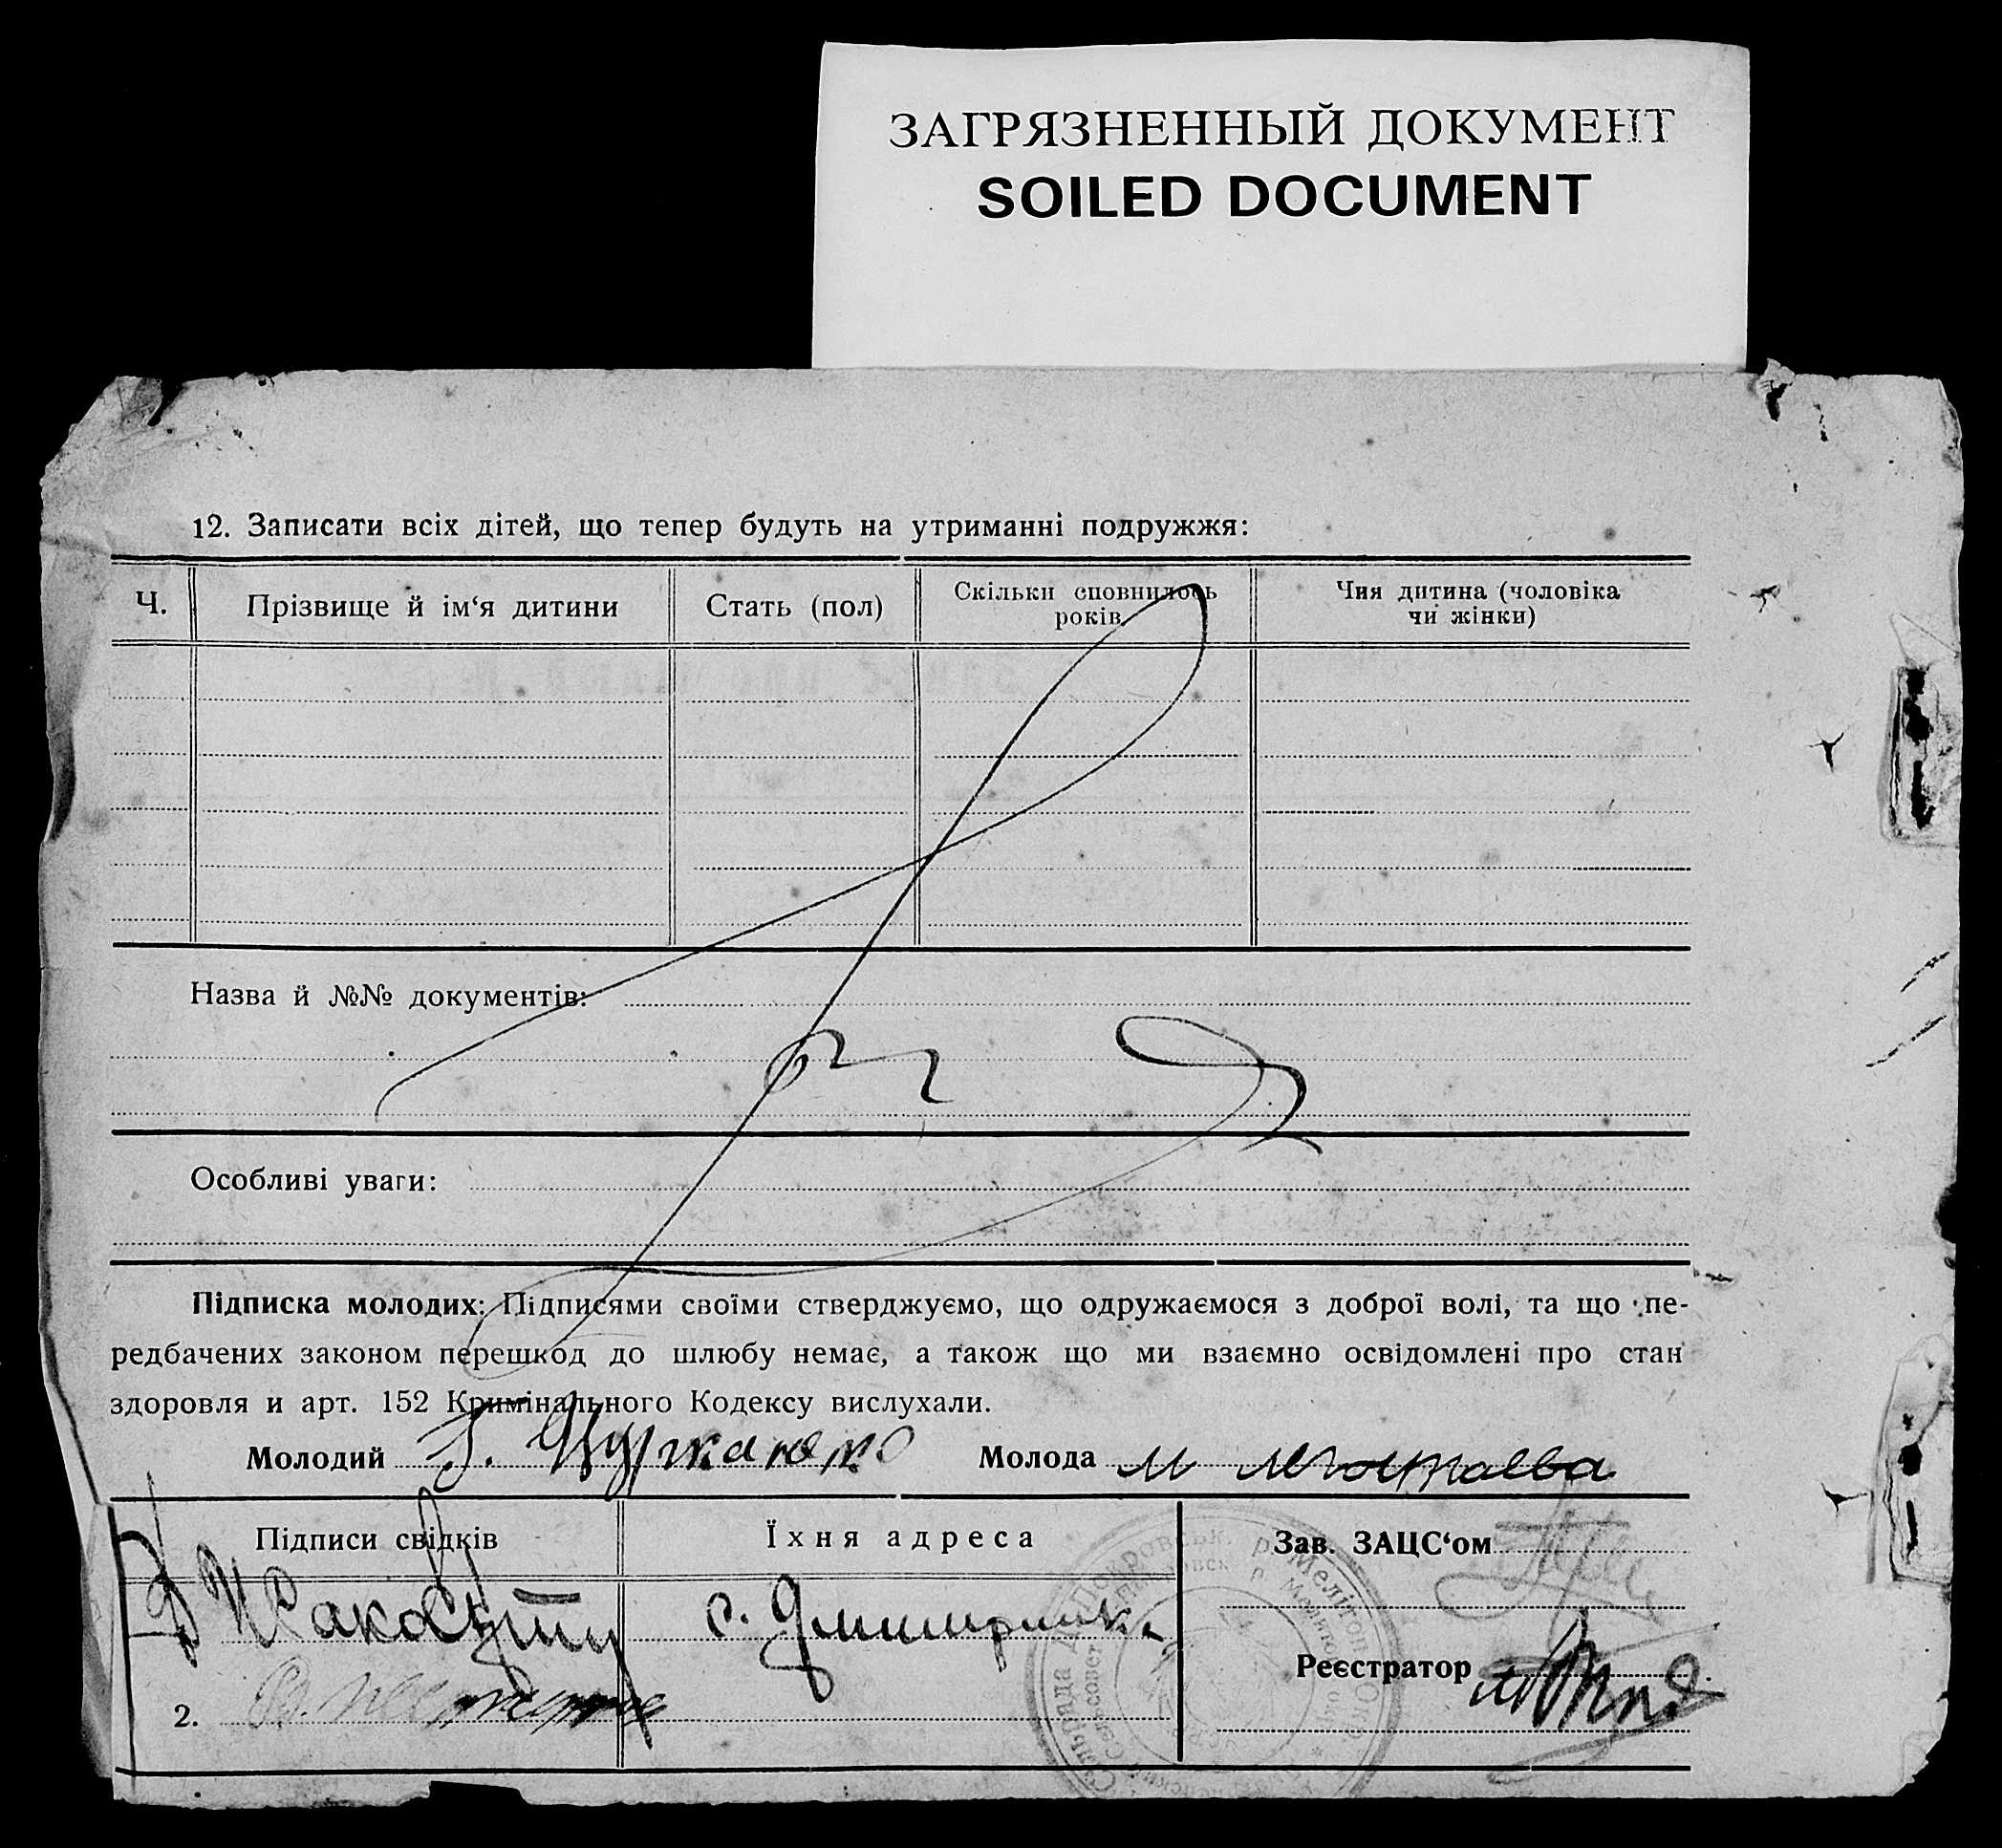 ЗАГРЯЗНЕННЫЙ ДОКУМЕНТ
SOILED DOCUMENT
12. Записати всіх дітей, що тепер будуть на утриманні подружжя:
Ч.
Прізвище й ім‘я дитини
Стать (пол)
Скільки сповнилось
років
Чия дитина (чоловіка
чи жінки)
Назва й №№ документів:
Особливі уваги:
Підписка молодих: Підписями своїми стверджуємо, що одружаємося з доброї волі, та що пе-
редбачених законом перешкод до шлюбу немає, а також що ми взаємно освідомлені про стан
здоровля и арт. 152 Кримінального Кодексу вислухали.
Молодий
Молода м
Підписи свідків
Їхня адреса
Зав. ЗАЦС‘ом
с.
Реєстратор
2.